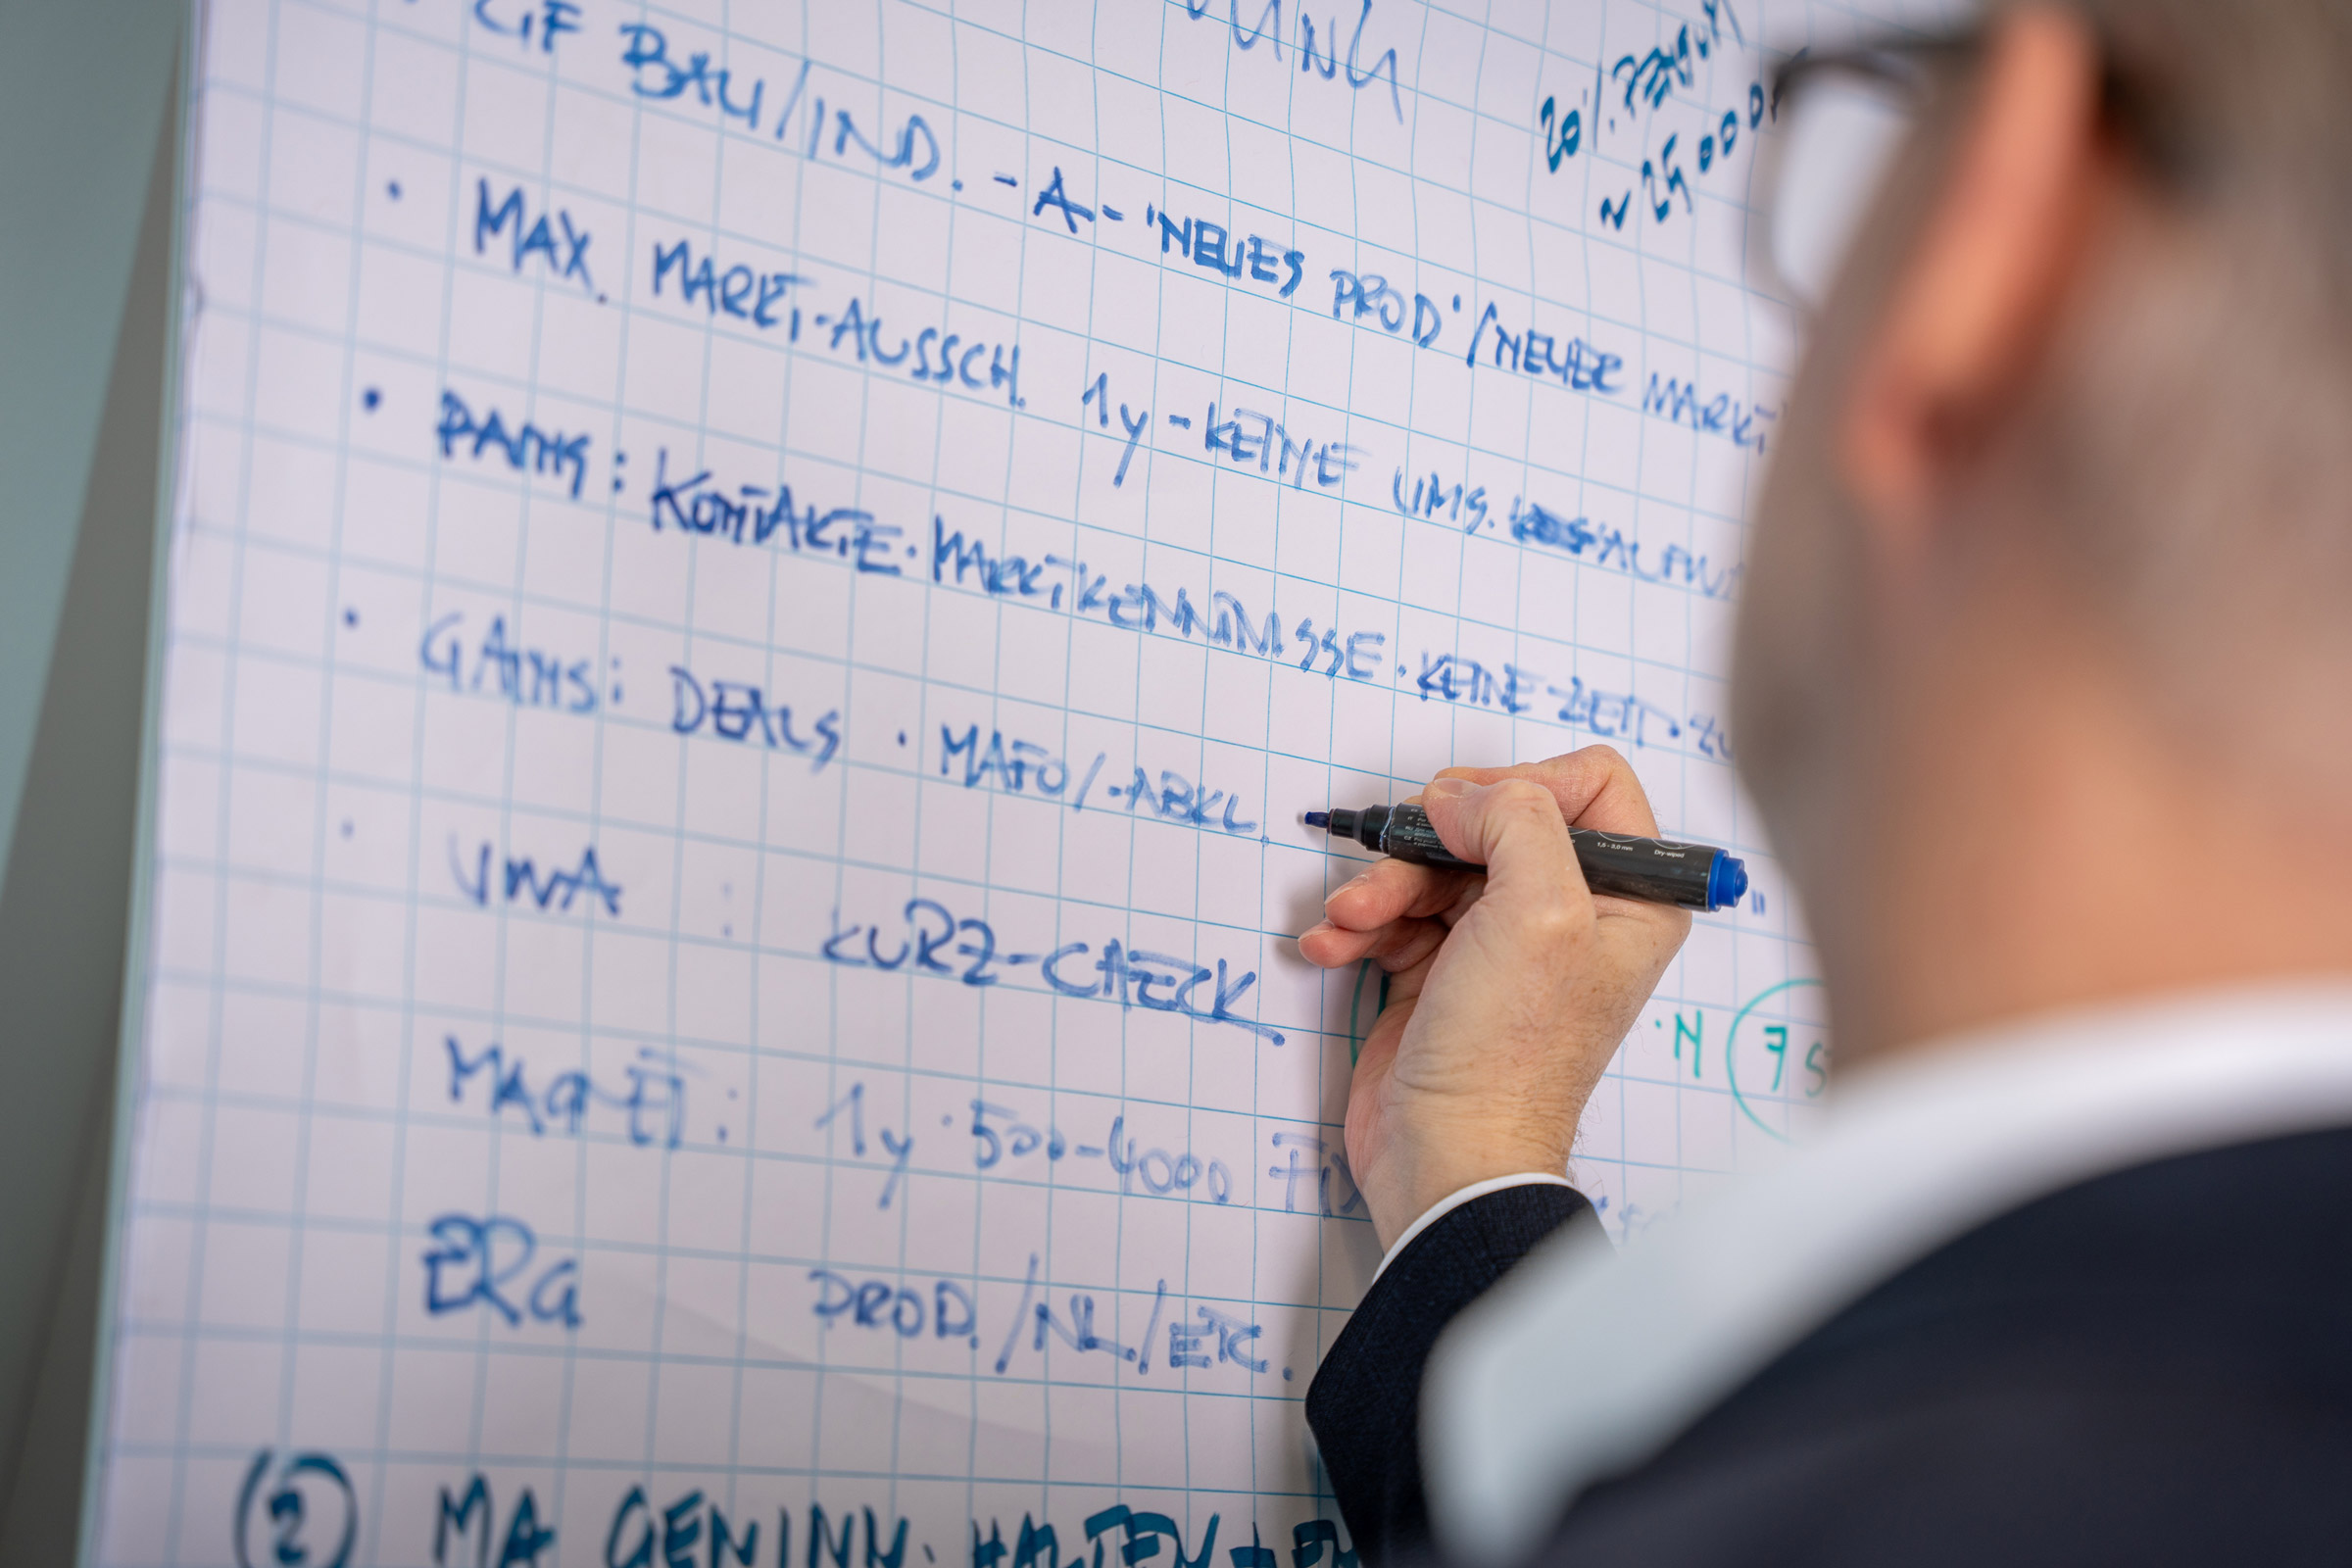 UNG
20%
~ 25000
GF BAU/IND. - A - 'NEUES PROD'/NEUER MARKT
• MAX. MARKT-AUSSCH. 1y - KEINE UMS.
• PAINS: KONTAKTE. MARKTKENNTNISSE. KEINE ZEIT.
• GAINS: DEALS • MAFO/-ABKL.
• UWA : KURZ-CHECK
"
MAQ-ET: 1y • 500-4000 FIX
N 7
ERG PROD./NL/ETC.
② MA GEWINN. HALTEN
1,5 - 3,0 mm
Dry-wiped